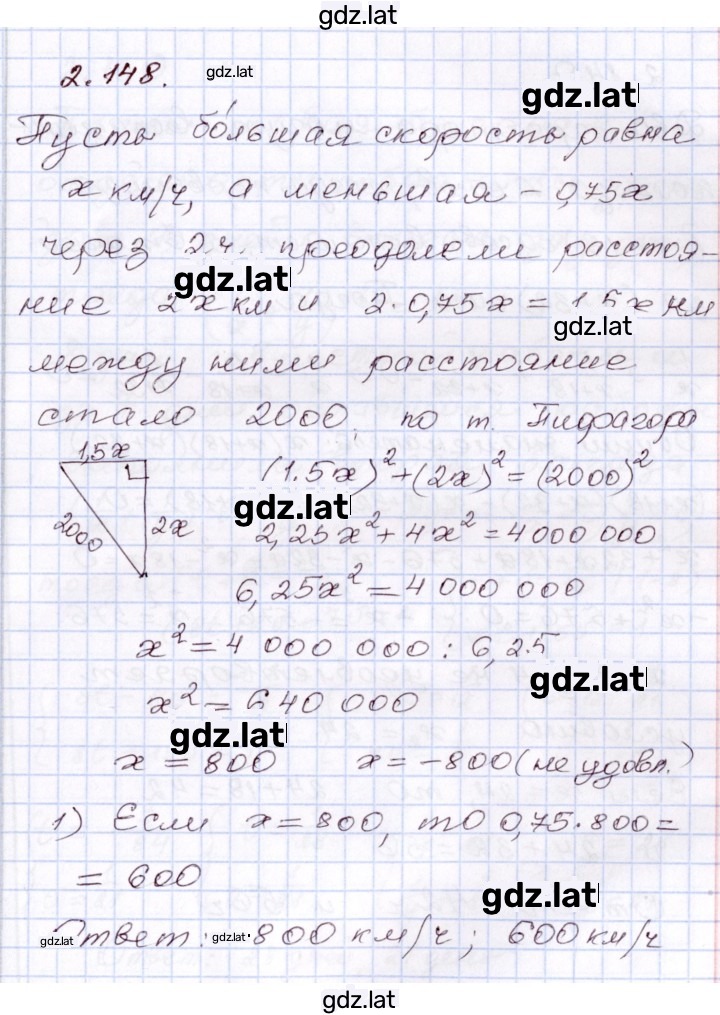 gdz.lat
2.148. gdz.lat
gdz.lat
Пусть бо́льшая скорость равна
x км/ч, а меньшая - 0,75x
через 2 ч. преодолели расстоя-
gdz.lat
ние 2x км и 2·0,75x = 1,5x км
gdz.lat
между ними расстояние
стало 2000. по т. Пифагора
1,5x
2000
2x
(1.5x)²+(2x)²=(2000)²
gdz.lat
2,25x²+4x²=4 000 000
6,25x²=4 000 000
x²=4 000 000 : 6,25
gdz.lat
x²=640 000
gdz.lat
x = 800 x=-800 (не удовл.)
1) Если x=800, то 0,75·800=
= 600
gdz.lat
gdz.lat Ответ: gdz.lat 800 км/ч; 600 км/ч
gdz.lat